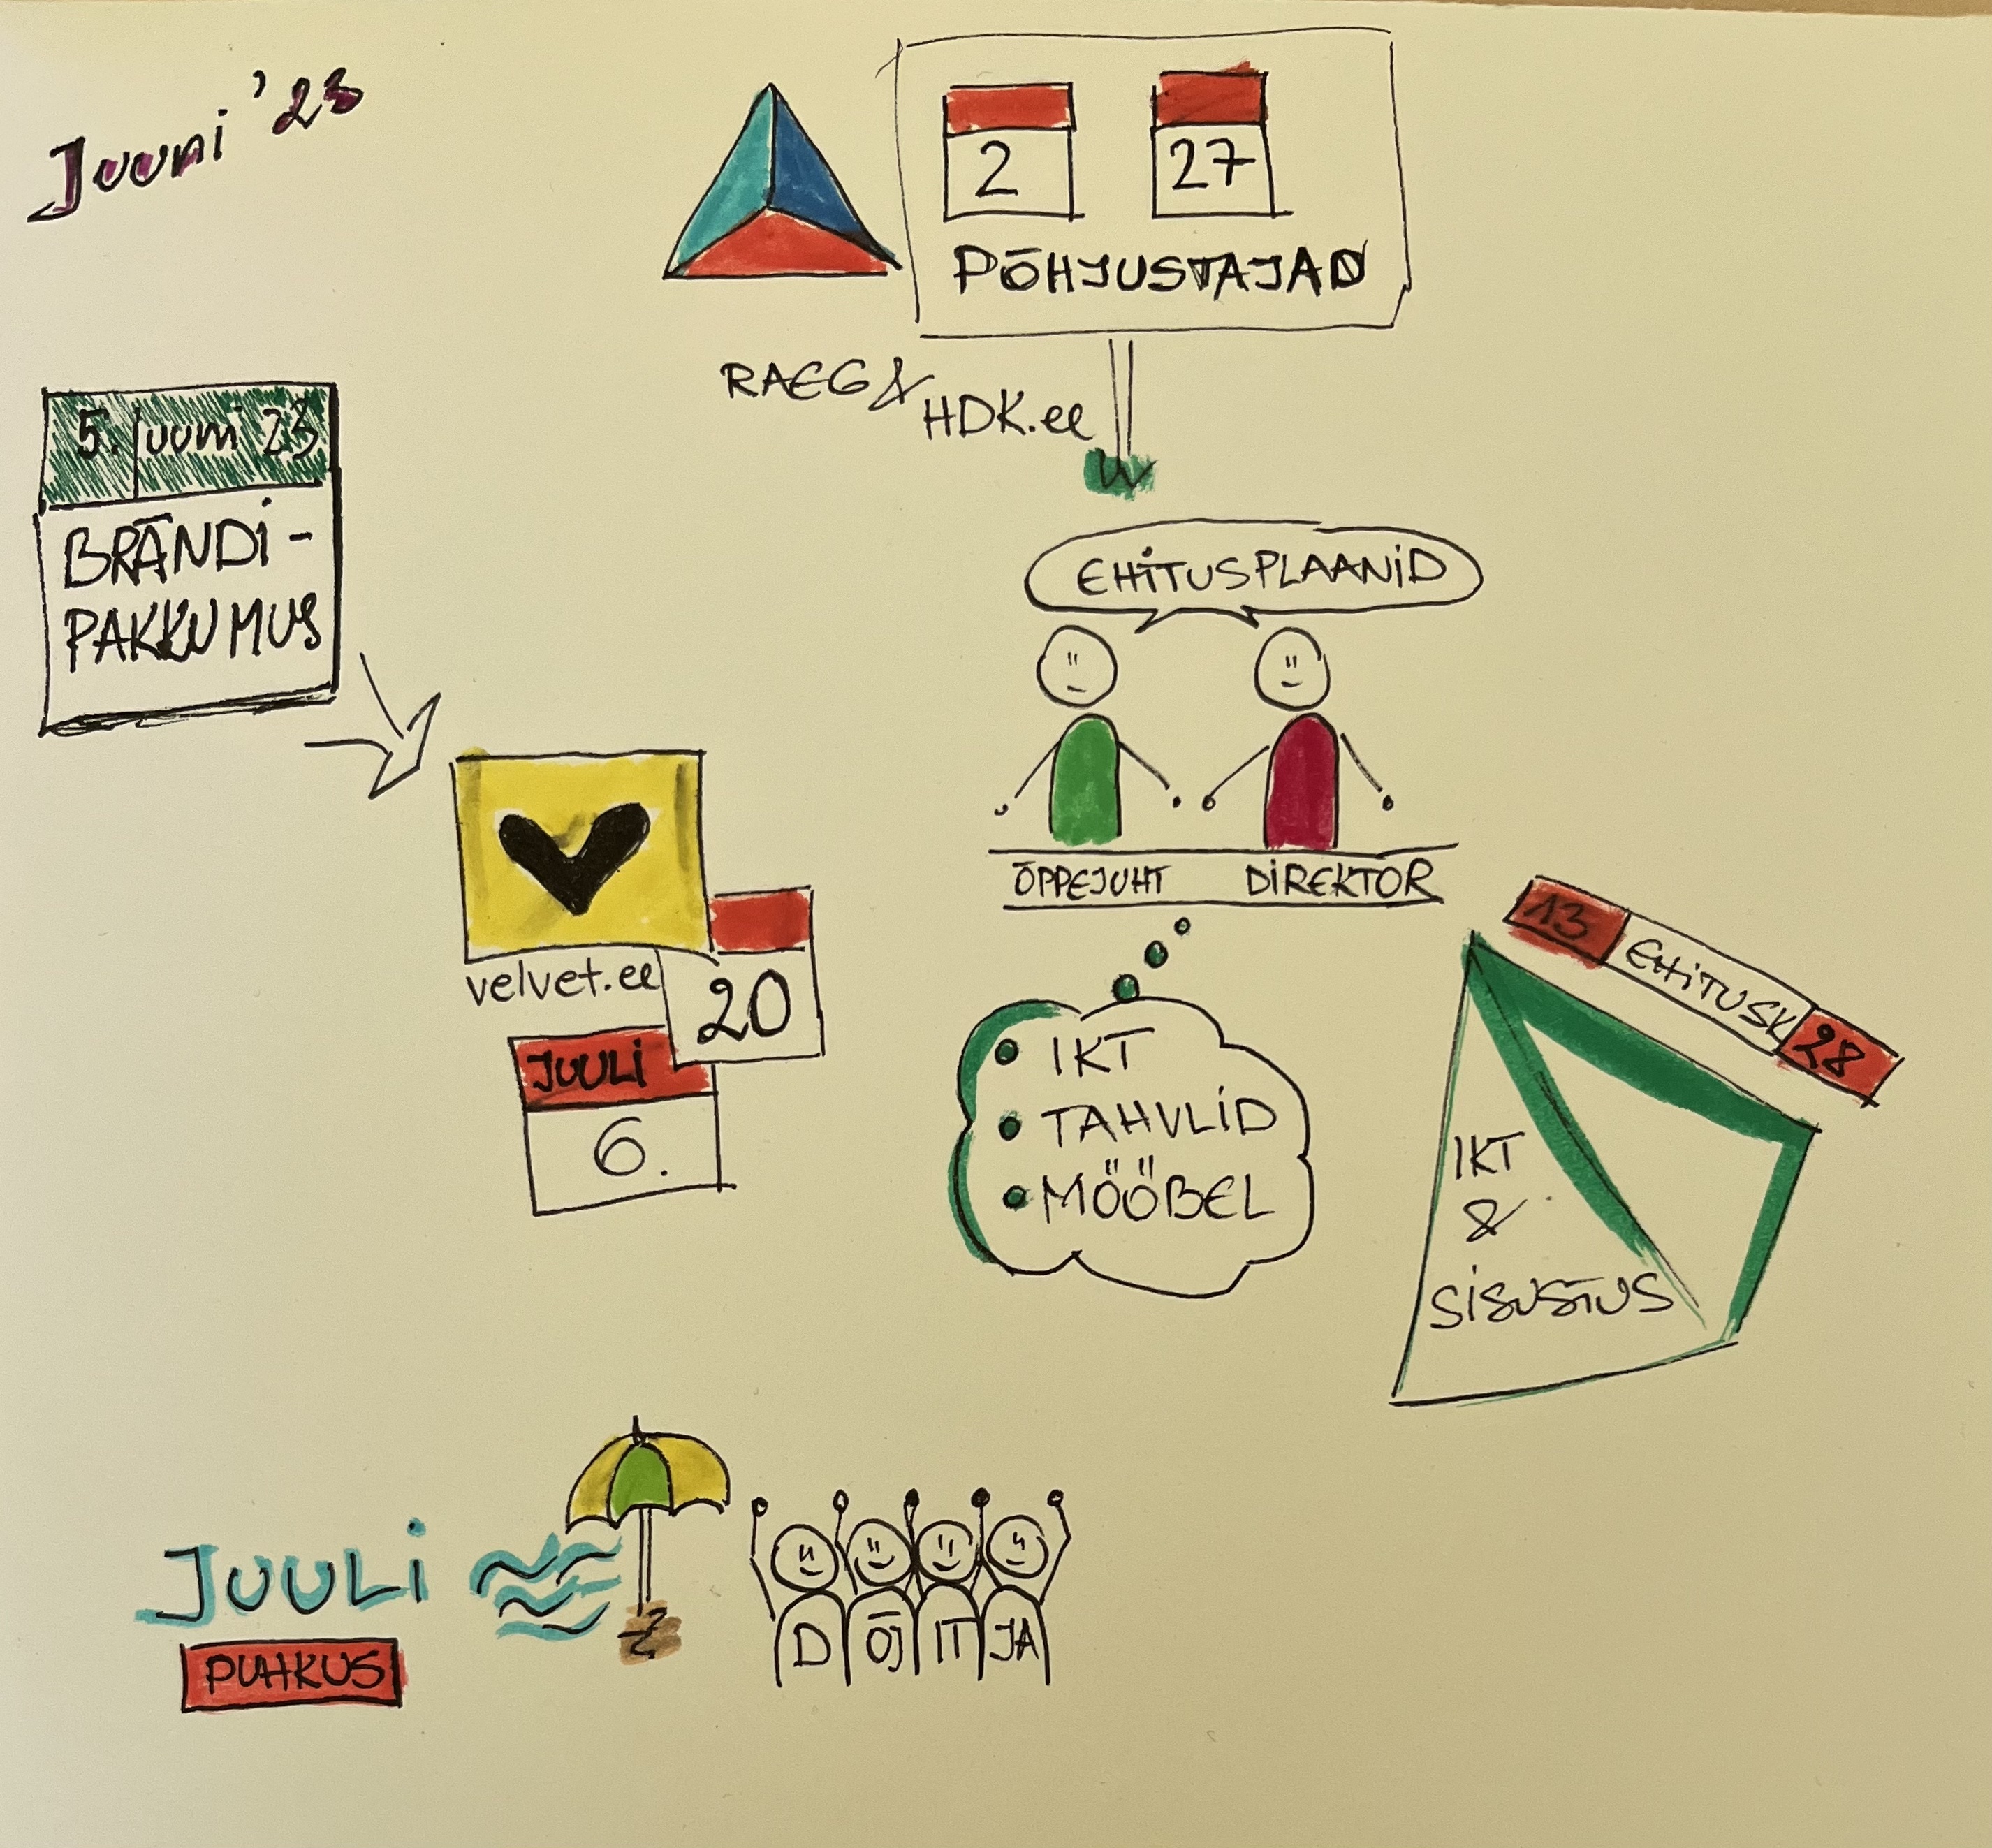 Juuni '23
2
27
PÕHJUSTAJAD
RAEG &
HDK.ee
5. juuni 23
BRÄNDI-
PAKKUMUS
EHITUSPLAANID
velvet.ee
20
JUULI
6.
ÕPPEJUHT
DIREKTOR
IKT
TAHVLID
MÖÖBEL
13
EHITUSK
28
IKT
&
SISUSTUS
JUULI
PUHKUS
D ÕJ IT JA